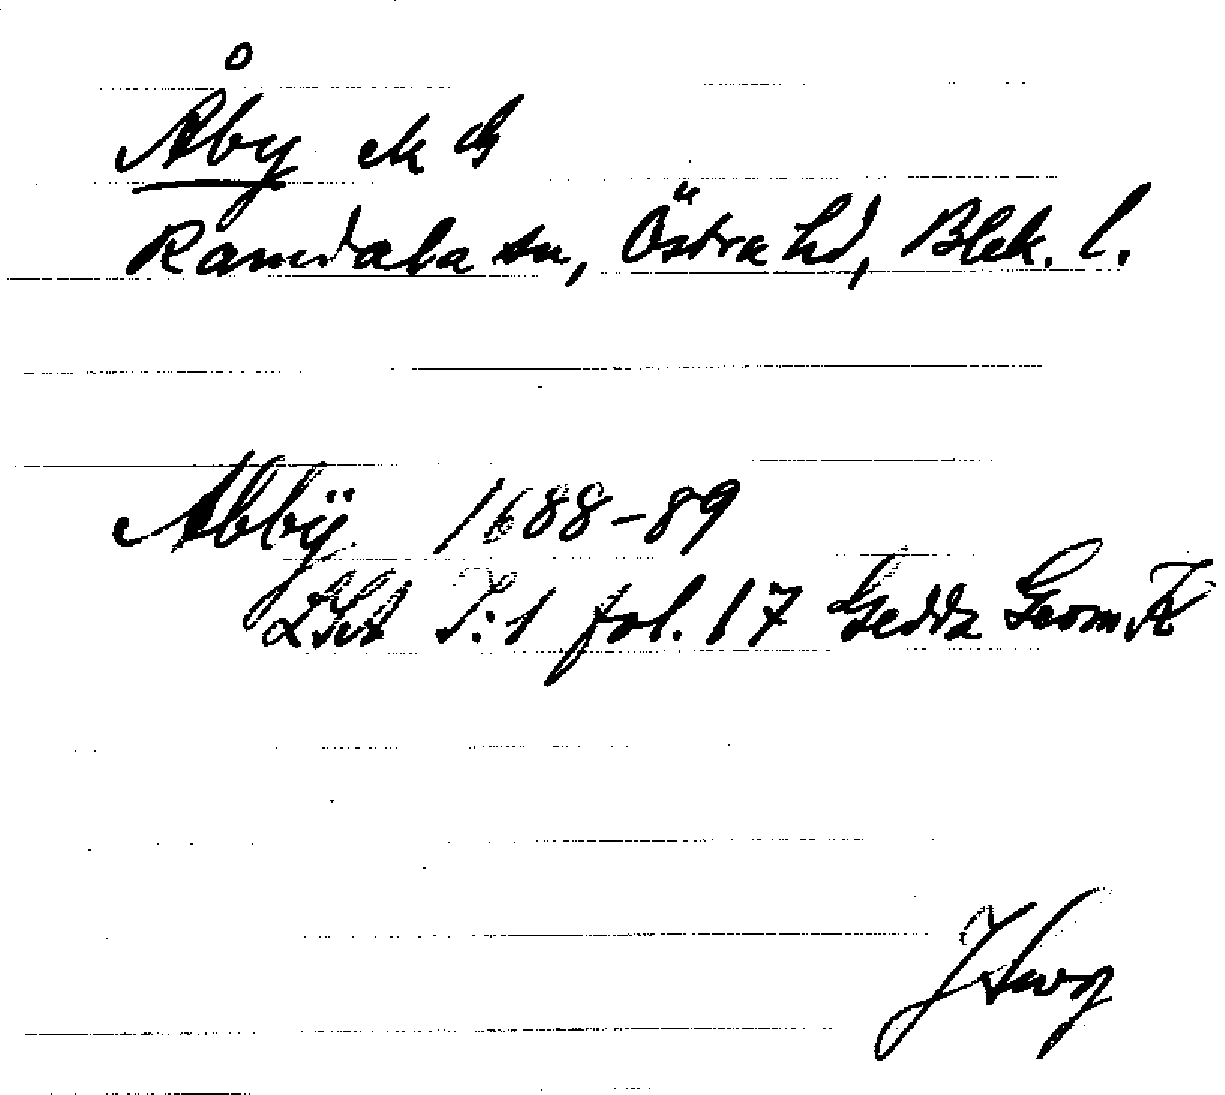 Åby ek by
Ramdala sn, Östra hd, Blek. l.
Abbÿ 1688-89
LSA I:1 fol. 17 Gedda Geom. K